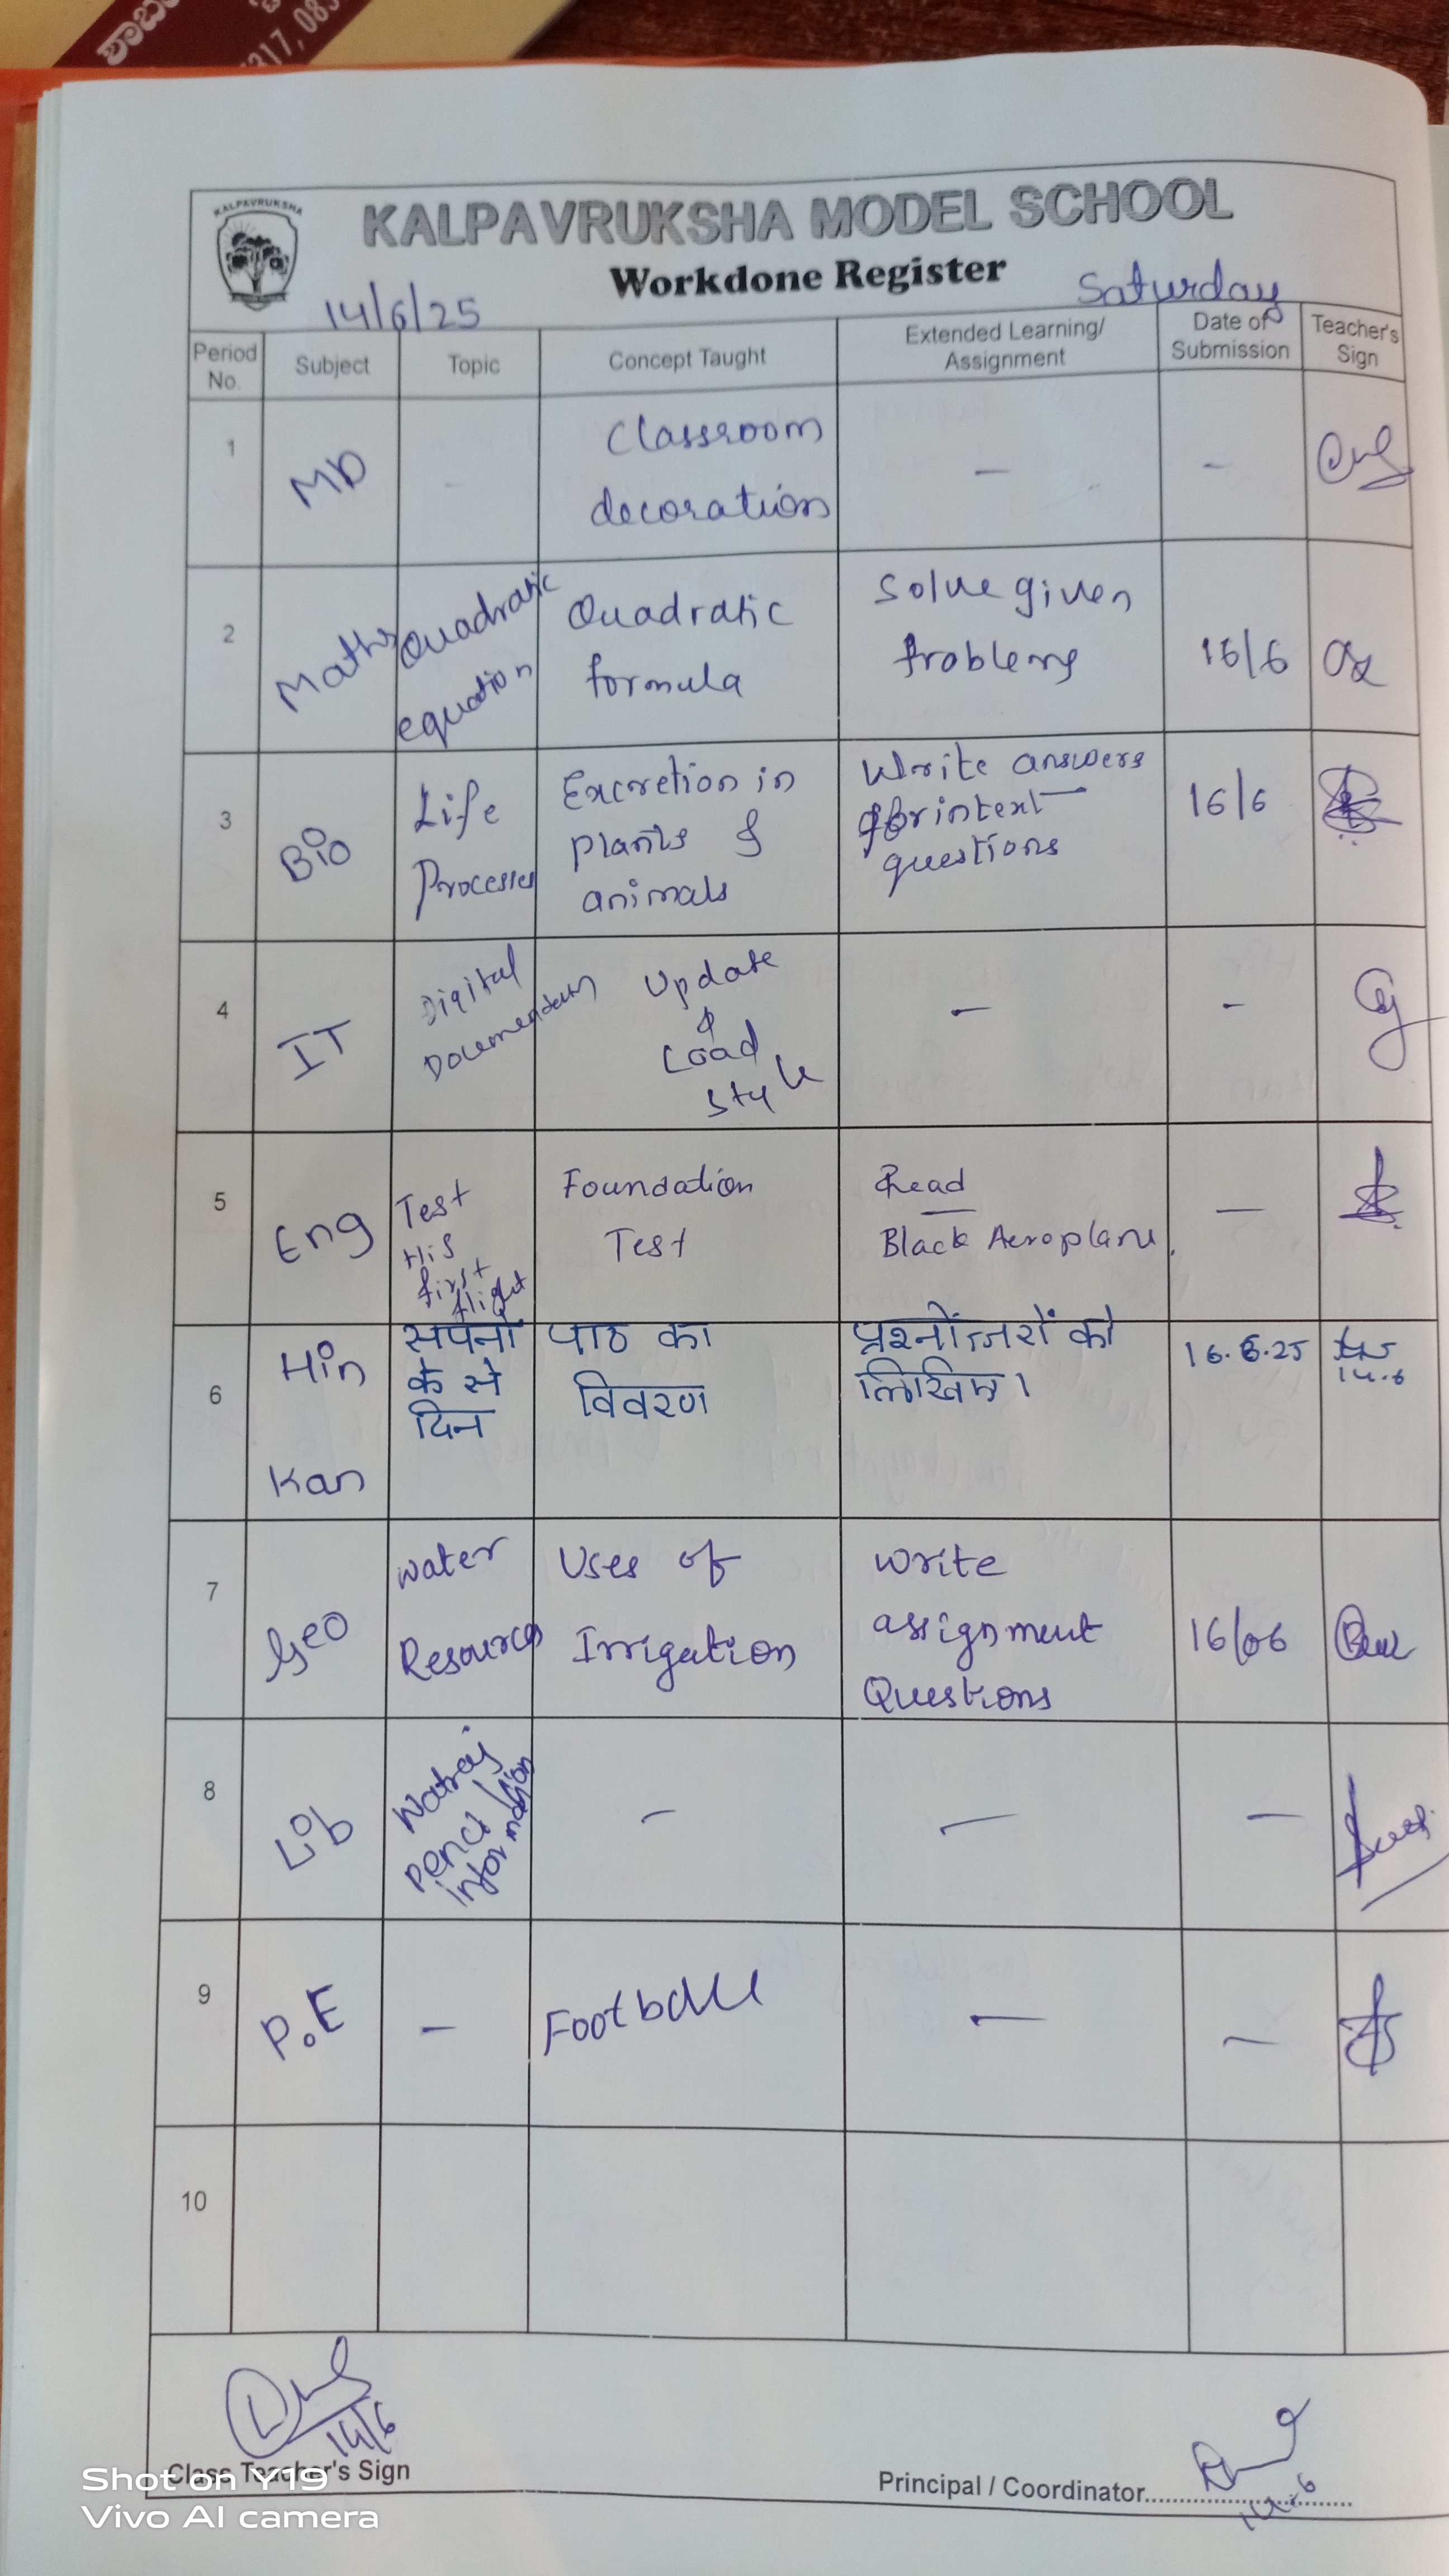 317, 083
KALPAVRUKSHA
KALPAVRUKSHA MODEL SCHOOL
Workdone Register
14/6/25
Saturday
Period No.
Subject
Topic
Concept Taught
Extended Learning/ Assignment
Date of Submission
Teacher's Sign
1
MD
-
Classroom
decoration
-
-
2
Maths
Quadratic
equation
Quadratic
formula
Solve given
problems
16/6
3
Bio
Life
Processes
Excretion in
plants &
animals
Write answers
for intext
questions
16/6
4
IT
Digital
Update
&
Load
style
-
-
5
Eng
Test
His
first
flight
Foundation
Test
Read
Black Aeroplane.
-
6
Hin
Kan
सपनों
के से
दिन
पाठ का
विवरण
को
लिखिए।
16.6.25
14.6
7
Geo
Water
Resources
Uses of
Irrigation
Write
assignment
Questions
16/06
8
Lib
Pencil
information
-
-
-
9
P.E
-
Football
-
-
10
14/6
Class Teacher's Sign
Principal / Coordinator
14.6
Shot on Y19
Vivo AI camera